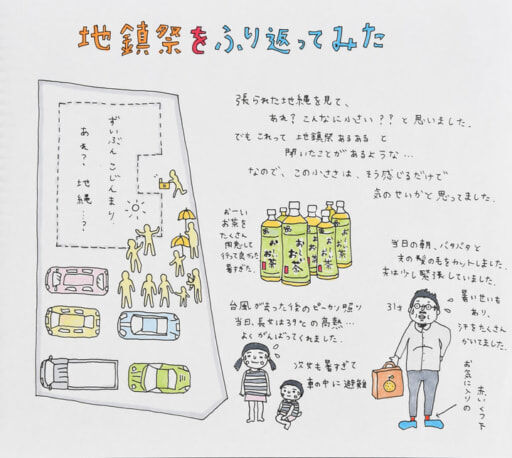 地鎮祭をふり返ってみた
張られた地縄を見て、
あれ？こんなに小さい？？と思いました。
でもこれって 地鎮祭あるある と
聞いたことがあるような…
なので、この小ささは、そう感じるだけで
気のせいかと思ってました。
ずいぶん こじんまり
あれ？ 地縄…？
おーい
お茶を
たくさん
用意して
行って良かった
暑すぎた。
お〜いお茶
お〜いお茶
お〜いお茶
当日の朝、バタバタと
夫の髪の毛をカットしました。
夫は少し緊張していました。
暑いせいも
あり、
汗をたくさん
かいてました。
31才
台風が去った後のピーカン照り
当日、長女は39℃の高熱…
よくがんばってくれました。
次女も暑すぎて
車の中に避難
お気に入りの
赤いくつ下